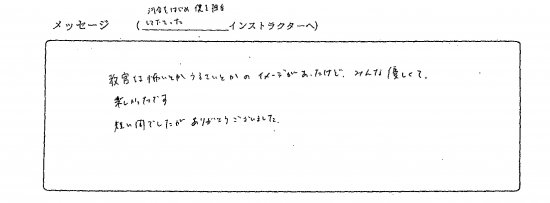 河合をはじめ 僕を担当
メッセージ (してくださった インストラクターへ)
教官は怖いとかうるさいとかのイメージがあったけど、みんな優しくて、
楽しかったです
短い間でしたがありがとうございました。